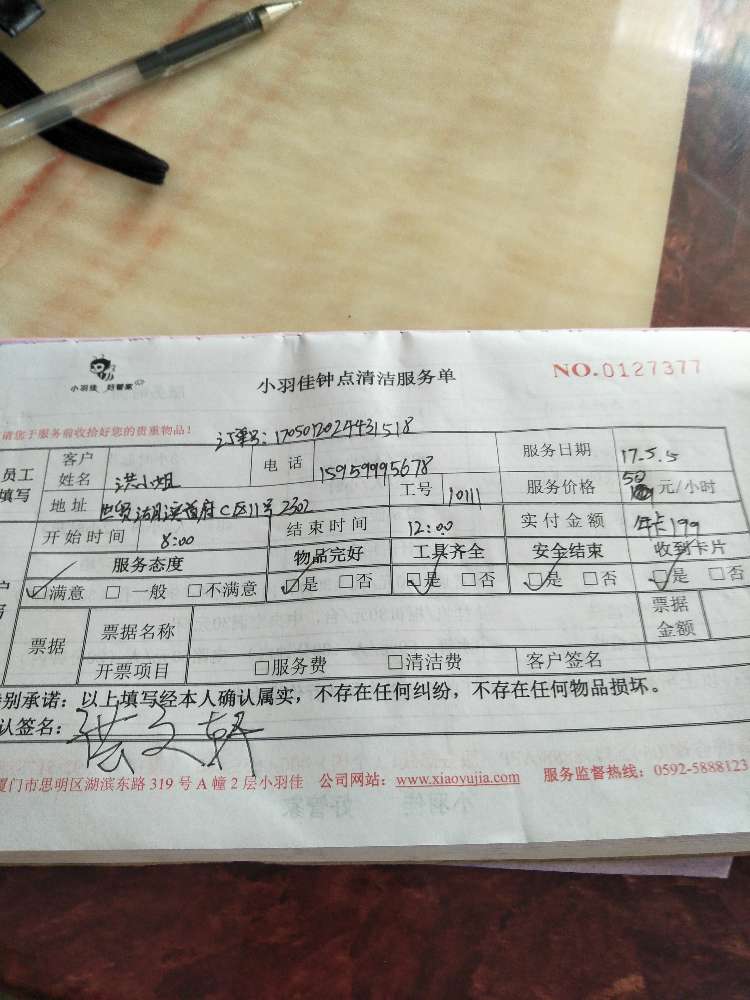 小羽佳 好管家
小羽佳钟点清洁服务单
NO.0127377
请您于服务前收拾好您的贵重物品!
订单号: 1705012024431518
员工填写 客户姓名 洪小姐 电话 15959995678 服务日期 17.5.5
地址 世贸湖滨首府C区11号2302 工号 10111 服务价格 50 元/小时
开始时间 8:00 结束时间 12:00 实付金额 年卡199
服务态度 物品完好 工具齐全 安全结束 收到卡片
☑满意 □一般 □不满意 ☑是 □否 ☑是 □否 ☑是 □否 ☑是 □否
票据 票据名称 票据金额
开票项目 □服务费 □清洁费 客户签名
别承诺:以上填写经本人确认属实,不存在任何纠纷,不存在任何物品损坏。
认签名:
厦门市思明区湖滨东路319号A幢2层小羽佳 公司网站:www.xiaoyujia.com 服务监督热线:0592-5888123